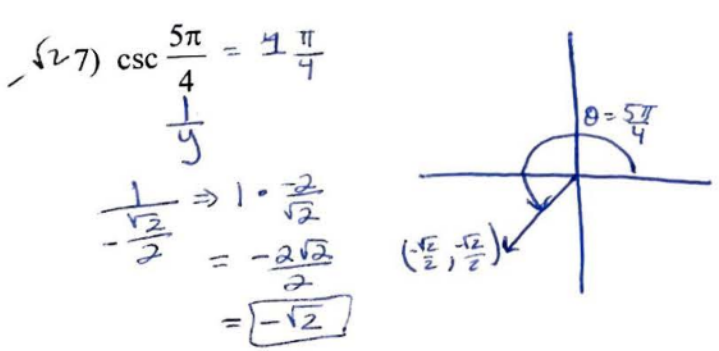 -√2 7) csc 5π/4 = 1 π/4
1/y
1/(-√2/2) ⇒ 1 · -2/√2
= -2√2/2
= -√2
θ = 5π/4
(-√2/2, -√2/2)